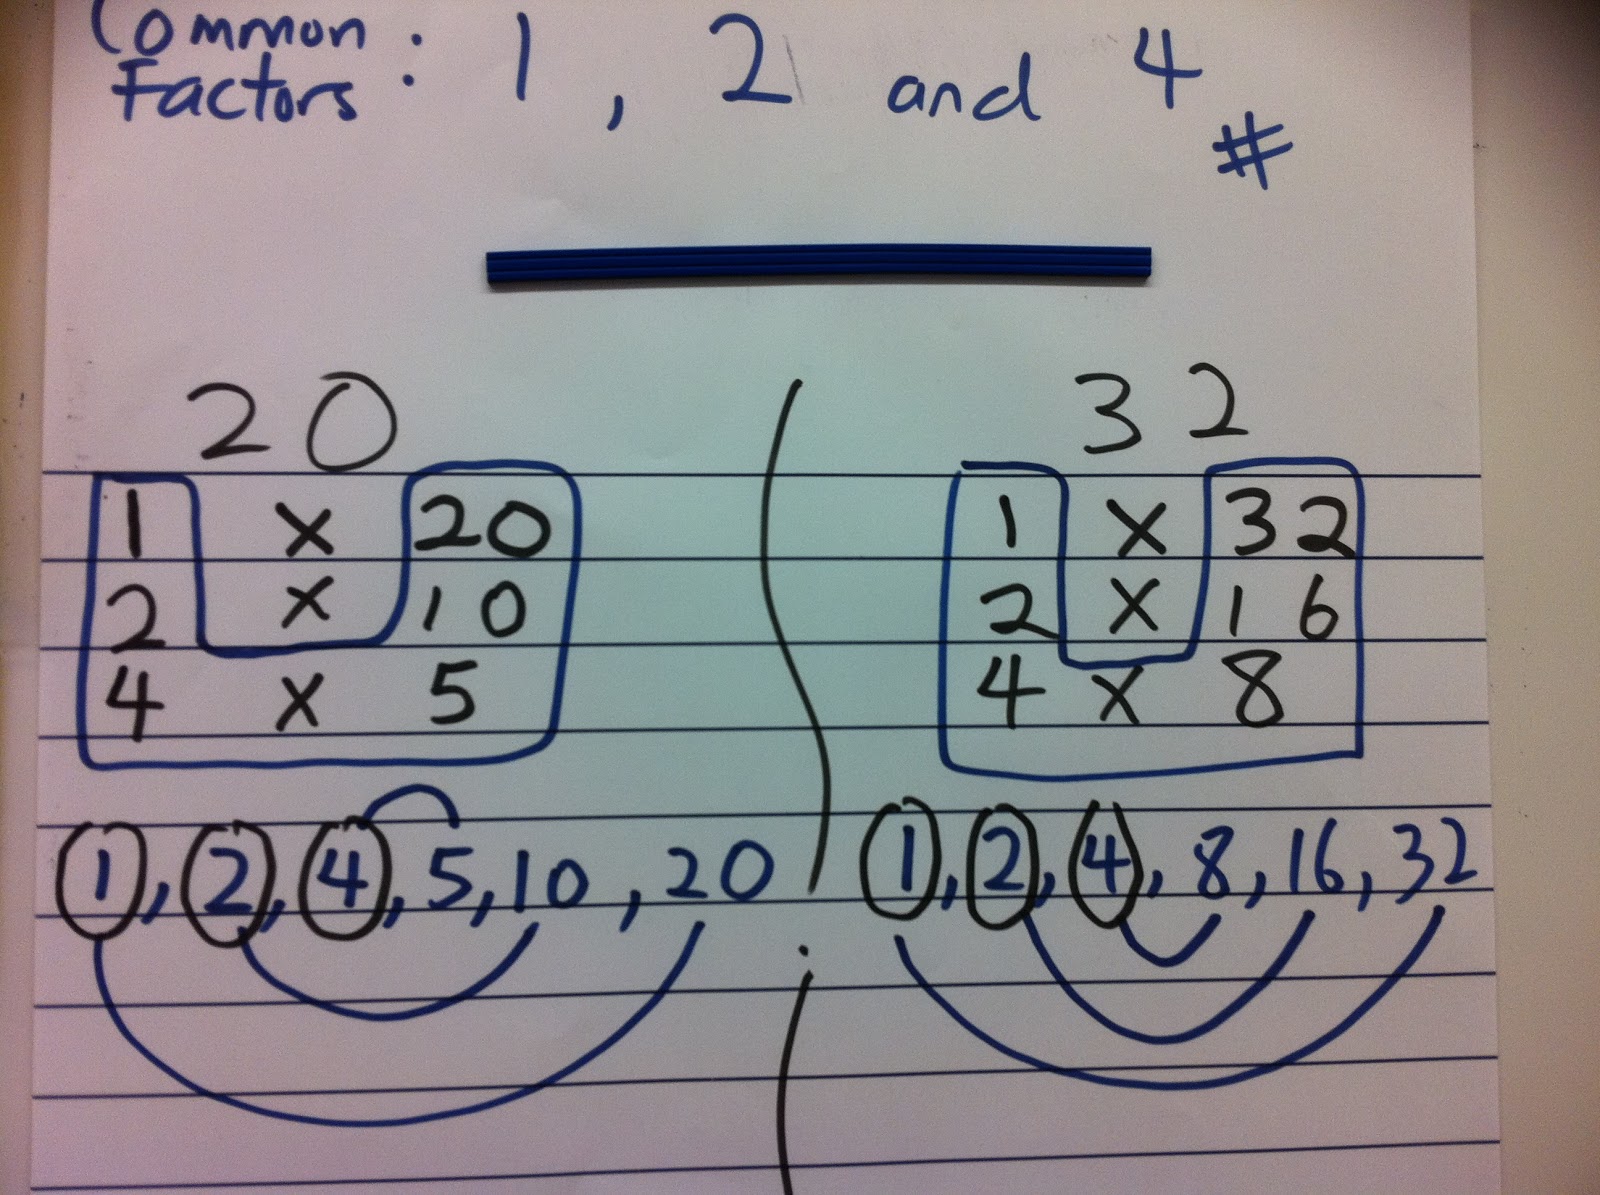 Common
Factors : 1 , 2 and 4 #
20
1 x 20
2 x 10
4 x 5
1, 2, 4, 5, 10, 20
32
1 x 32
2 x 16
4 x 8
1, 2, 4, 8, 16, 32